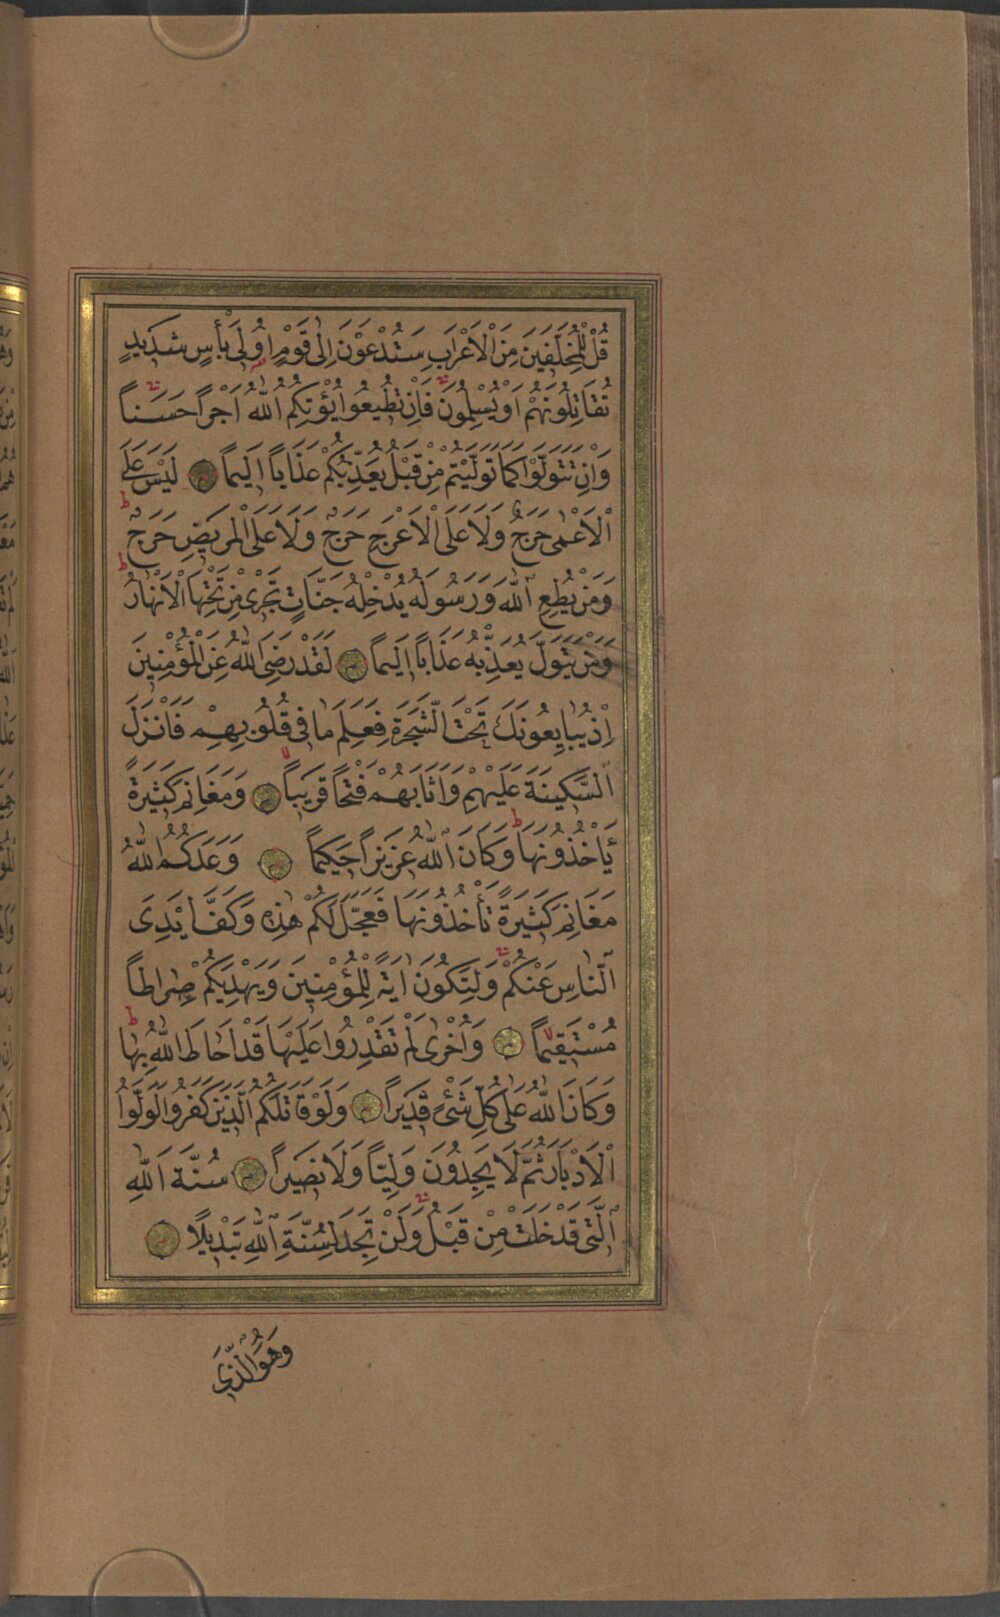 قُلْ لِلْمُخَلَّفِينَ مِنَ الْاَعْرَابِ سَتُدْعَوْنَ اِلٰى قَوْمٍ اُولِى بَأْسٍ شَدِيدٍ
تُقَاتِلُونَهُمْ اَوْ يُسْلِمُونَ فَاِنْ تُطِيعُوا يُؤْتِكُمُ اللّٰهُ اَجْرًا حَسَنًا
وَاِنْ تَتَوَلَّوْا كَمَا تَوَلَّيْتُمْ مِنْ قَبْلُ يُعَذِّبْكُمْ عَذَابًا اَلِيمًا لَيْسَ عَلَى
الْاَعْمٰى حَرَجٌ وَلَا عَلَى الْاَعْرَجِ حَرَجٌ وَلَا عَلَى الْمَرِيضِ حَرَجٌ
وَمَنْ يُطِعِ اللّٰهَ وَرَسُولَهُ يُدْخِلْهُ جَنَّاتٍ تَجْرِى مِنْ تَحْتِهَا الْاَنْهَارُ
وَمَنْ يَتَوَلَّ يُعَذِّبْهُ عَذَابًا اَلِيمًا لَقَدْ رَضِىَ اللّٰهُ عَنِ الْمُؤْمِنِينَ
اِذْ يُبَايِعُونَكَ تَحْتَ الشَّجَرَةِ فَعَلِمَ مَا فِى قُلُوبِهِمْ فَاَنْزَلَ
السَّكِينَةَ عَلَيْهِمْ وَاَثَابَهُمْ فَتْحًا قَرِيبًا وَمَغَانِمَ كَثِيرَةً
يَأْخُذُونَهَا وَكَانَ اللّٰهُ عَزِيزًا حَكِيمًا وَعَدَكُمُ اللّٰهُ
مَغَانِمَ كَثِيرَةً تَأْخُذُونَهَا فَعَجَّلَ لَكُمْ هٰذِهِ وَكَفَّ اَيْدِىَ
النَّاسِ عَنْكُمْ وَلِتَكُونَ اٰيَةً لِلْمُؤْمِنِينَ وَيَهْدِيَكُمْ صِرَاطًا
مُسْتَقِيمًا وَاُخْرٰى لَمْ تَقْدِرُوا عَلَيْهَا قَدْ اَحَاطَ اللّٰهُ بِهَا
وَكَانَ اللّٰهُ عَلٰى كُلِّ شَىْءٍ قَدِيرًا وَلَوْ قَاتَلَكُمُ الَّذِينَ كَفَرُوا لَوَلَّوُا
الْاَدْبَارَ ثُمَّ لَا يَجِدُونَ وَلِيًّا وَلَا نَصِيرًا سُنَّةَ اللّٰهِ
الَّتِى قَدْ خَلَتْ مِنْ قَبْلُ وَلَنْ تَجِدَ لِسُنَّةِ اللّٰهِ تَبْدِيلًا
وَهُوَ الَّذِى